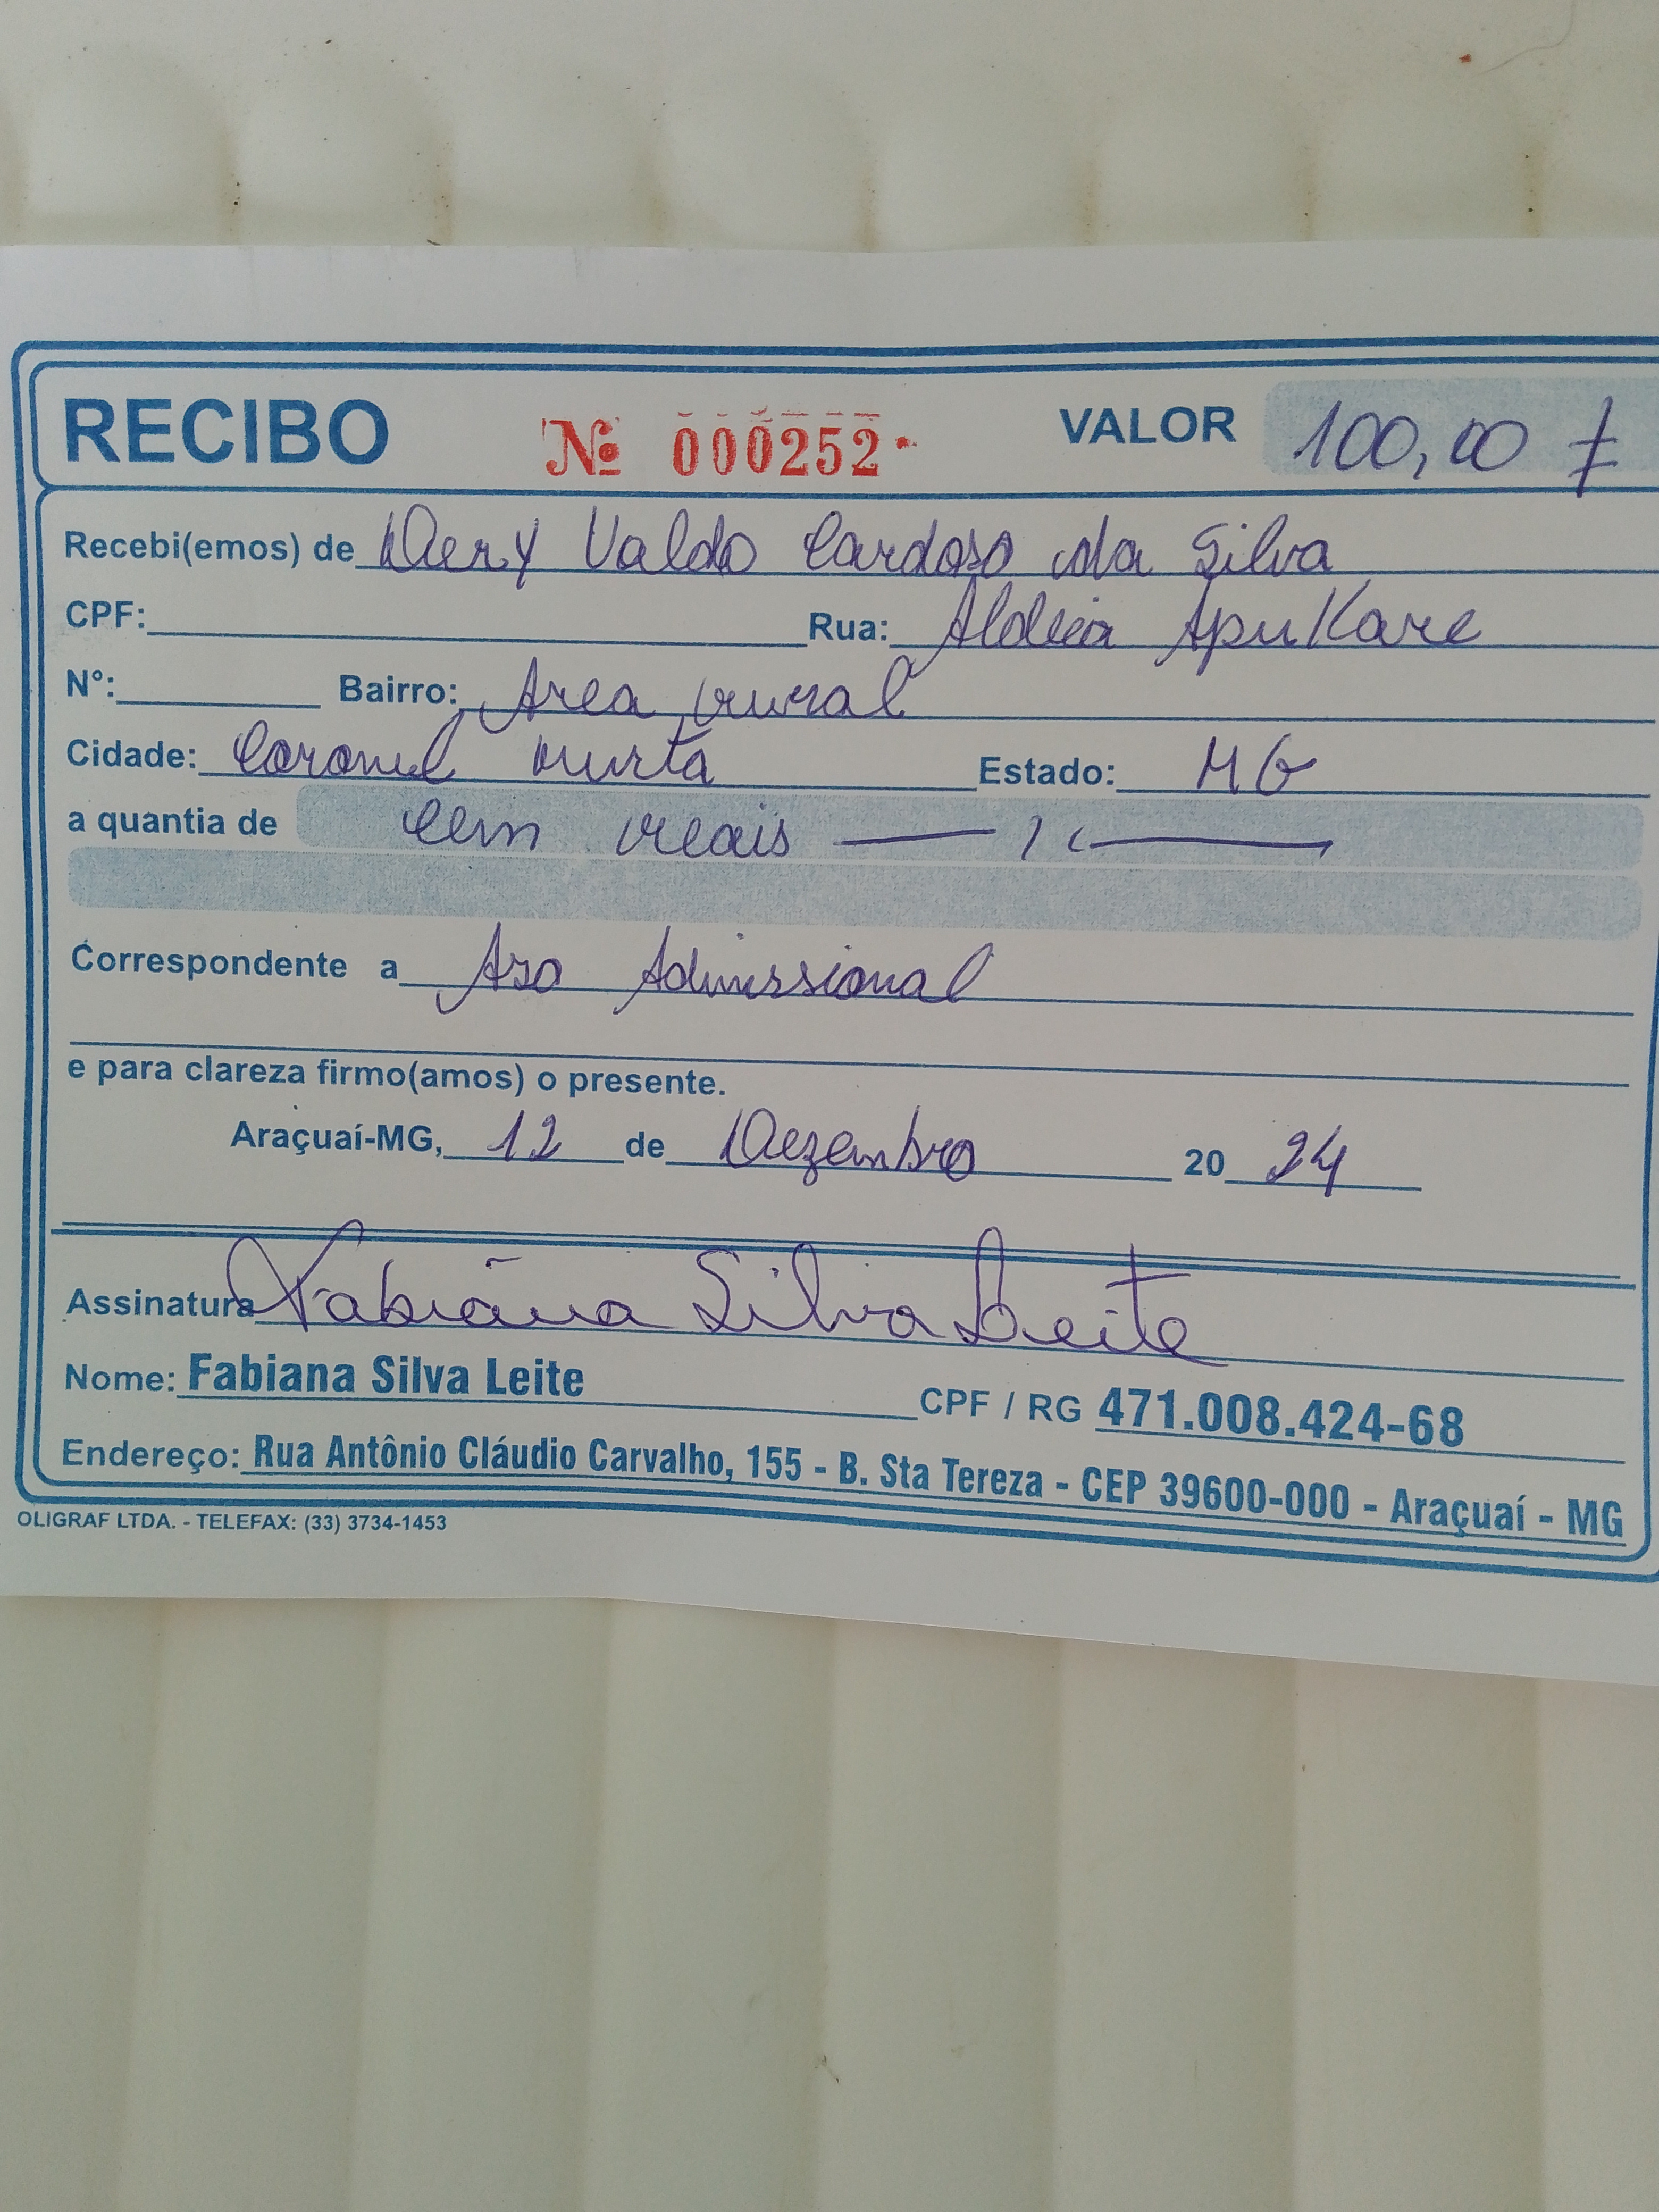 RECIBO Nº 000252 VALOR 100,00
Recebi(emos) de Dery Valdo Cardoso da Silva
CPF: Rua: Aldeia Apukare
N°: Bairro: Area rural
Cidade: Coronel murta Estado: MG
a quantia de cem reais
Correspondente a Aso Admissional
e para clareza firmo(amos) o presente.
Araçuaí-MG, 12 de Dezembro 20 24
Assinatura Fabiana Silva Leite
Nome: Fabiana Silva Leite CPF / RG 471.008.424-68
Endereço: Rua Antônio Cláudio Carvalho, 155 - B. Sta Tereza - CEP 39600-000 - Araçuaí - MG
OLIGRAF LTDA. - TELEFAX: (33) 3734-1453